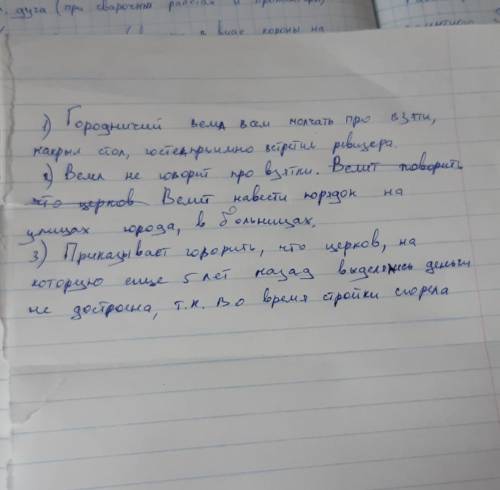 дуга (при сварочных работах и
в виде короны на
1) Городничий велел всем молчать про взятки,
накрыл стол, гостеприимно встретил ревизора.
2) Велел не говорит про взятки. Велит говорить
что церков Велит навести порядок на
улицах города, в больницах.
3) Приказывает говорить, что церков, на
которую еще 5 лет назад выделялись деньги
не достроена, т.к. во время стройки сгорела